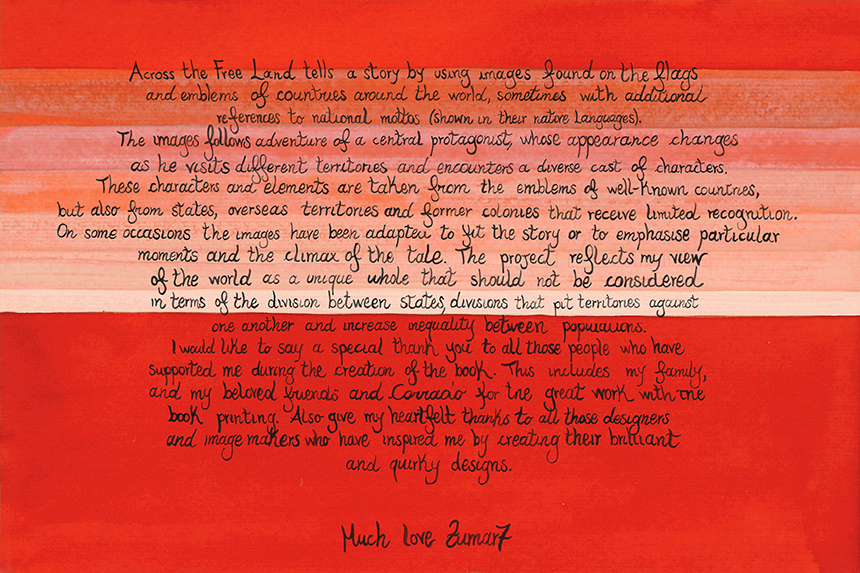 Across the Free Land tells a story by using images found on the flags
and emblems of countries around the world, sometimes with additional
references to national mottos (shown in their native languages).
The images follows adventure of a central protagonist, whose appearance changes
as he visits different territories and encounters a diverse cast of characters.
These characters and elements are taken from the emblems of well-known countries,
but also from states, overseas territories and former colonies that receive limited recognition.
On some occasions the images have been adapted to fit the story or to emphasise particular
moments and the climax of the tale. The project reflects my view
of the world as a unique whole that should not be considered
in terms of the division between states, divisions that pit territories against
one another and increase inequality between populations.
I would like to say a special thank you to all those people who have
supported me during the creation of the book. This includes my family,
and my beloved friends and Corrado for the great work with the
book printing. Also give my heartfelt thanks to all those designers
and image makers who have inspired me by creating their brilliant
and quirky designs.
Much love Zumar7